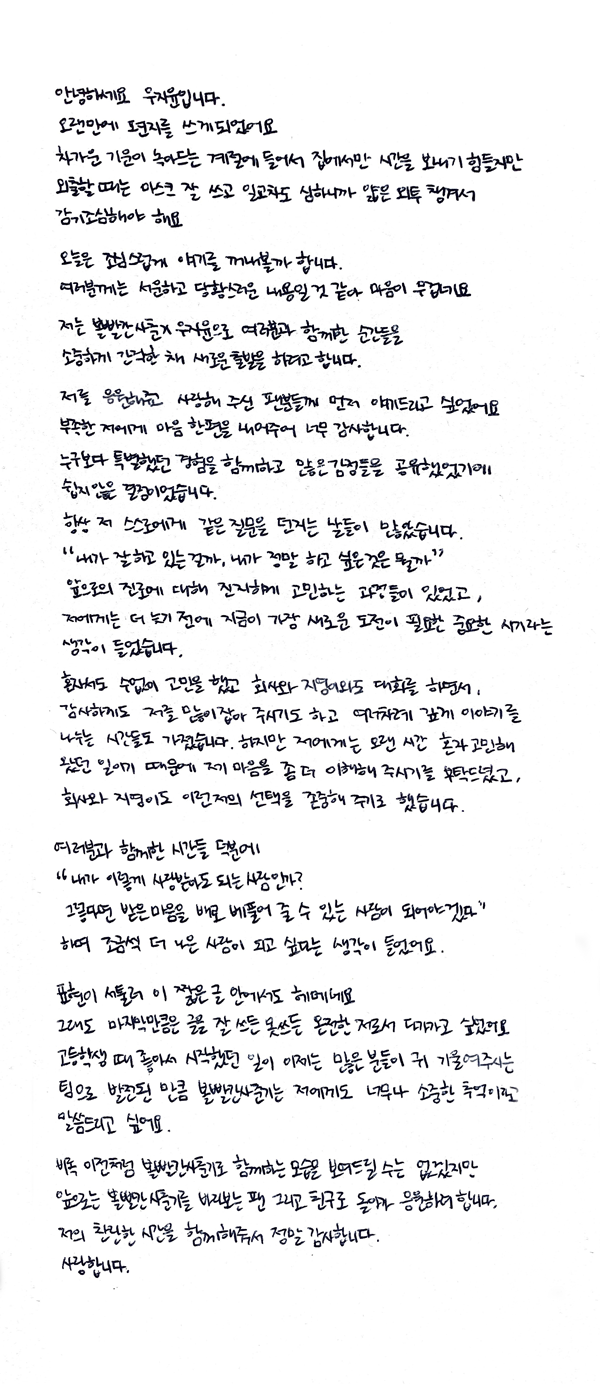 안녕하세요 우지윤입니다.
오랜만에 편지를 쓰게되었어요
차가운 기운이 녹아드는 계절에 들어서 집에서만 시간을 보내기 힘들지만
외출할 때는 마스크 잘 쓰고 일교차도 심하니까 얇은 외투 챙겨서
감기조심해야 해요
오늘은 조심스럽게 얘기를 꺼내볼까 합니다.
여러분께는 서운하고 당황스러운 내용일 것 같아 마음이 무겁네요
저는 볼빨간사춘기 우지윤으로 여러분과 함께한 순간들을
소중하게 간직한 채 새로운 출발을 하려고 합니다.
저를 응원해주고 사랑해 주신 팬분들께 먼저 얘기드리고 싶었어요
부족한 저에게 마음 한편을 내어주어 너무 감사합니다.
누구보다 특별했던 경험을 함께하고 많은 감정들을 공유했었기에
쉽지않은 결정이었습니다.
항상 저 스스로에게 같은 질문을 던지는 날들이 많았습니다.
“내가 잘 하고 있는걸까, 내가 정말 하고 싶은것은 뭘까”
앞으로의 진로에 대해 진지하게 고민하는 과정들이 있었고,
저에게는 더 늦기 전에 지금이 가장 새로운 도전이 필요한 중요한 시기라는
생각이 들었습니다.
혼자서도 수없이 고민을 했고 회사와 지영이와도 대화를 하면서,
감사하게도 저를 많이 잡아 주시기도 하고 여러차례 깊게 이야기를
나누는 시간들도 가졌습니다. 하지만 저에게는 오랜 시간 혼자 고민해
왔던 일이기 때문에 제 마음을 좀 더 이해해 주시기를 부탁드렸고,
회사와 지영이도 이런 저의 선택을 존중해 주기로 했습니다.
여러분과 함께한 시간들 덕분에
“내가 이렇게 사랑받아도 되는 사람인가?
그렇다면 받은 마음을 배로 베풀어 줄 수 있는 사람이 되어야겠다”
하며 조금씩 더 나은 사람이 되고 싶다는 생각이 들었어요.
표현이 서툴러 이 짧은 글 안에서도 헤매네요
그래도 마지막만큼은 글을 잘 쓰든 못쓰든 온전한 저로서 다가가고 싶었어요
고등학생 때 좋아서 시작했던 일이 이제는 많은 분들이 귀 기울여주시는
팀으로 발전된 만큼 볼빨간사춘기는 저에게도 너무나 소중한 추억이라고
말씀드리고 싶어요.
비록 이전처럼 볼빨간사춘기로 함께하는 모습을 보여드릴 수는 없겠지만
앞으로는 볼빨간사춘기를 바라보는 팬 그리고 친구로 돌아가 응원하려 합니다.
저의 찬란한 시간을 함께해줘서 정말 감사합니다.
사랑합니다.